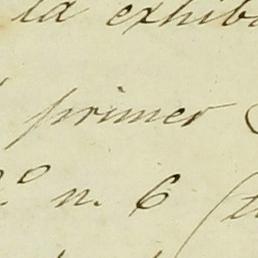 la exhib
primer
º n. 6 (